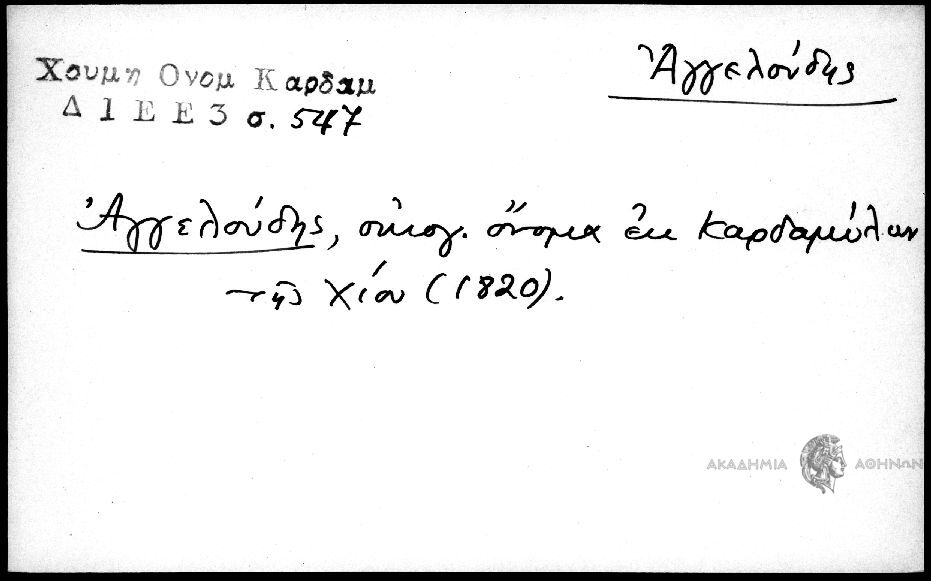 Χουμη Ονομ Καρδαμ
Δ 1 Ε Ε 3 σ. 547
Ἀγγελούδης
Ἀγγελούδης, οἰκογ. ὄνομα ἐκ Καρδαμύλων
τῆς Χίου (1820).
ΑΚΑΔΗΜΙΑ ΑΘΗΝΩΝ